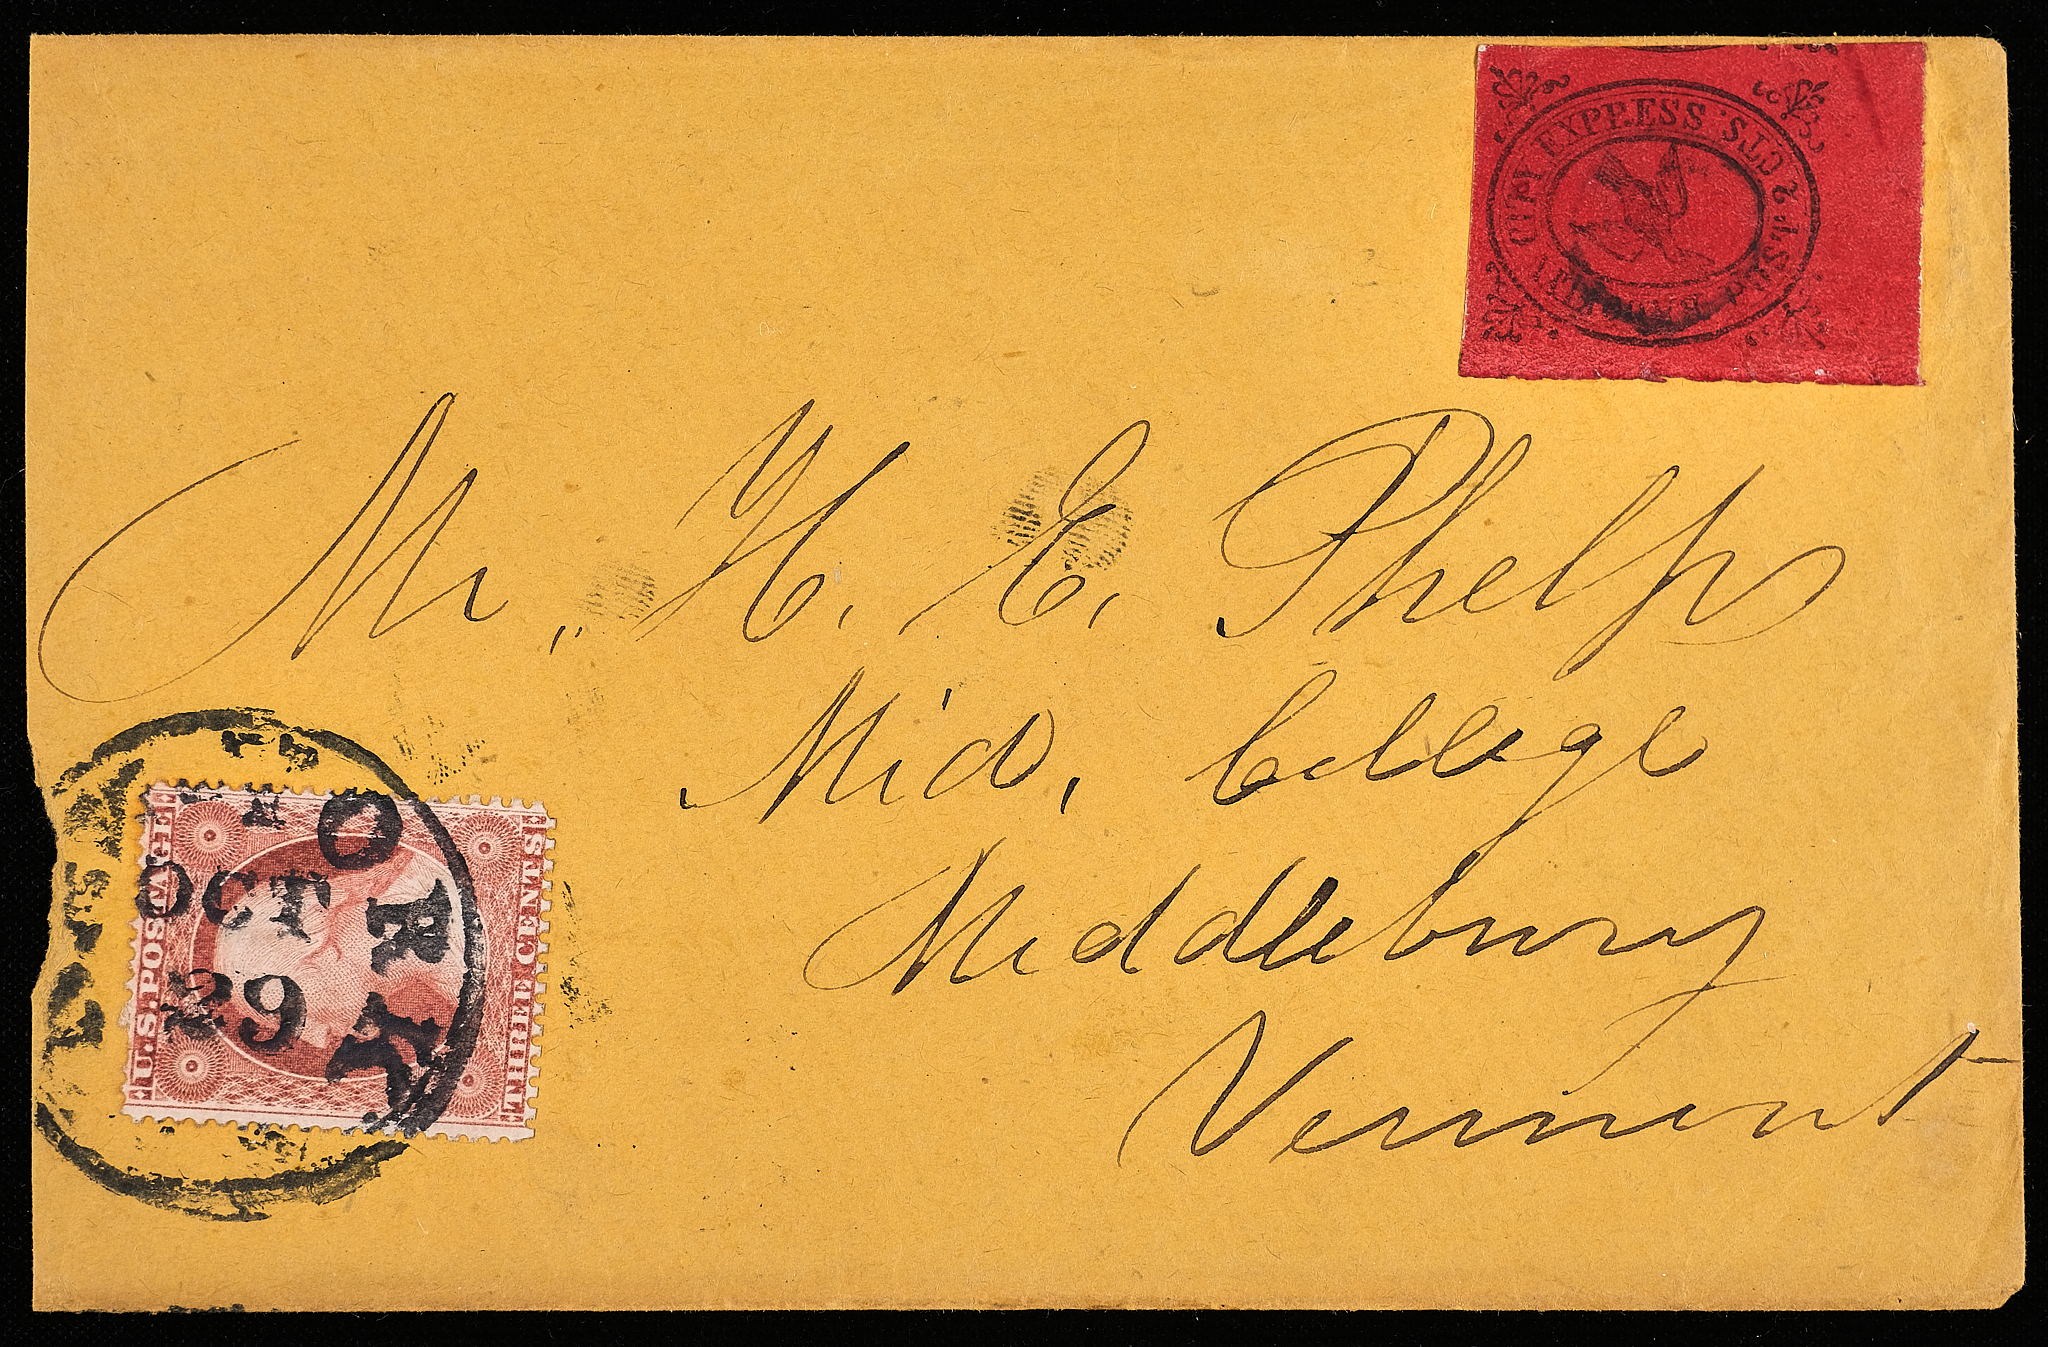 CITY EXPRESS
2 CTS.
Mr. H. E. Phelps
Mid, College
Middlebury
Vermont
YORK
OCT
29
U.S. POSTAGE
THREE CENTS